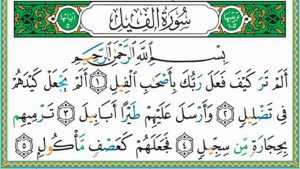 ترتيبها ١٠٥ سُورَةُ الْفِيلِ آياتها ٥
بِسْمِ ٱللَّهِ ٱلرَّحْمَٰنِ ٱلرَّحِيمِ
أَلَمْ تَرَ كَيْفَ فَعَلَ رَبُّكَ بِأَصْحَٰبِ ٱلْفِيلِ ١ أَلَمْ يَجْعَلْ كَيْدَهُمْ
فِى تَضْلِيلٍ ٢ وَأَرْسَلَ عَلَيْهِمْ طَيْرًا أَبَابِيلَ ٣ تَرْمِيهِم
بِحِجَارَةٍ مِّن سِجِّيلٍ ٤ فَجَعَلَهُمْ كَعَصْفٍ مَّأْكُولٍ ٥